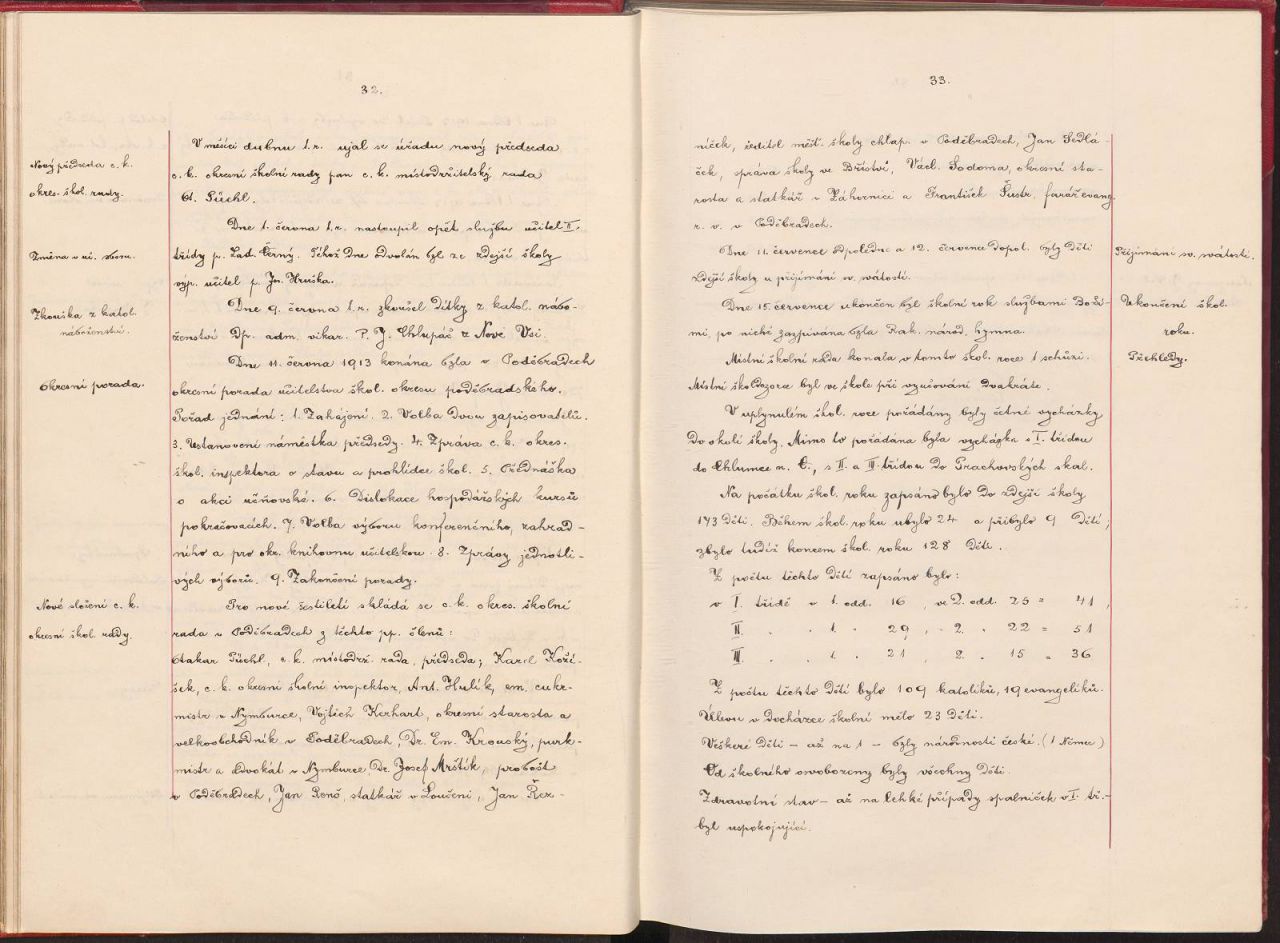 32.
V měsíci dubnu t. r. ujal se úřadu nový předseda
Nový předseda c. k.
c. k. okresní školní rady pan c. k. místodržitelský rada
okres. škol. rady.
Ot. Püchl.
Dne 1. června t. r. nastoupil opět službu učitel II.
Změna v uč. sboru.
třídy p. Lad. Černý. Téhož dne odvolán byl ze zdejší školy
výp. učitel p. Jos. Hruška.
Zkouška z katol.
náboženství.
Dne 9. června t. r. zkoušel dítky z katol. nábo-
ženství Dp. adm. vikar. P. J. Chlupáč z Nové Vsi.
Dne 11. června 1913 konána byla v Poděbradech
Okresní porada.
okresní porada učitelstva škol. okresu poděbradského.
Pořad jednání: 1. Zahájení. 2. Volba dvou zapisovatelů.
3. Ustanovení náměstka předsedy. 4. Zpráva c. k. okres.
škol. inspektora o stavu a prohlídce škol. 5. Přednáška
o akci učňovské. 6. Dislokace hospodářských kursů
pokračovacích. 7. Volba výboru konferenčního, zahrad-
ního a pro okr. knihovnu učitelskou. 8. Zprávy jednotli-
vých výborů. 9. Zakončení porady.
Nové složení c. k.
okresní škol. rady.
Pro nové šestiletí skládá se c. k. okres. školní
rada v Poděbradech z těchto pp. členů:
Otakar Püchl, c. k. místodrž. rada, předseda; Karel Koží-
šek, c. k. okresní školní inspektor, Ant. Hulík, em. cukr-
mistr v Nymburce, Vojtěch Kerhart, okresní starosta a
velkoobchodník v Poděbradech, Dr. Em. Krouský, purk-
mistr a advokát v Nymburce, Dr. Josef Mrštík, probošt
v Poděbradech, Jan Beneš, statkář v Loučeni, Jan Řez-
33.
níček, ředitel měšť. školy chlap. v Poděbradech, Jan Sedlá-
ček, správa školy ve Bříství, Václ. Sodoma, okresní sta-
rosta a statkář v Záhornici a František Šustr, farář evang.
r. v. v Poděbradech.
Dne 11. července odpoledne a 12. července dopol. byly děti
Přijímání sv. svátosti.
zdejší školy u přijímání sv. svátostí.
Dne 15. července ukončen byl školní rok službami Boží-
Ukončení škol.
roku.
mi, po nichž zazpívána byla Rak. národ. hymna.
Místní školní rada konala v tomto škol. roce 1 schůzi.
Přehledy.
Místní škol. dozorce byl ve škole při vyučování dvakráte.
V uplynulém škol. roce pořádány byly četné vycházky
do okolí školy. Mimo to pořádána byla vycházka s I. třídou
do Chlumce n. C., s II. a III. třídou do Prachovských skal.
Na počátku škol. roku zapsáno bylo do zdejší školy
143 dětí. Během škol. roku ubylo 24 a přibylo 9 dětí;
zbylo tudíž koncem škol. roku 128 dětí.
Z počtu těchto dětí zapsáno bylo:
v I. třídě v 1. odd. 16, ve 2. odd. 25 = 41,
II. " " 1. " 29, " 2. " 22 = 51
III. " " 1. " 21, " 2. " 15 = 36
Z počtu těchto dětí bylo 109 katolíků, 19 evangelíků.
Úlevu v docházce školní mělo 23 dětí.
Veškeré děti – až na 1 – byly národnosti české. (1 Němec)
Od školného osvobozeny byly všechny děti.
Zdravotní stav – až na lehké případy spalniček v I. tř. –
byl uspokojující.